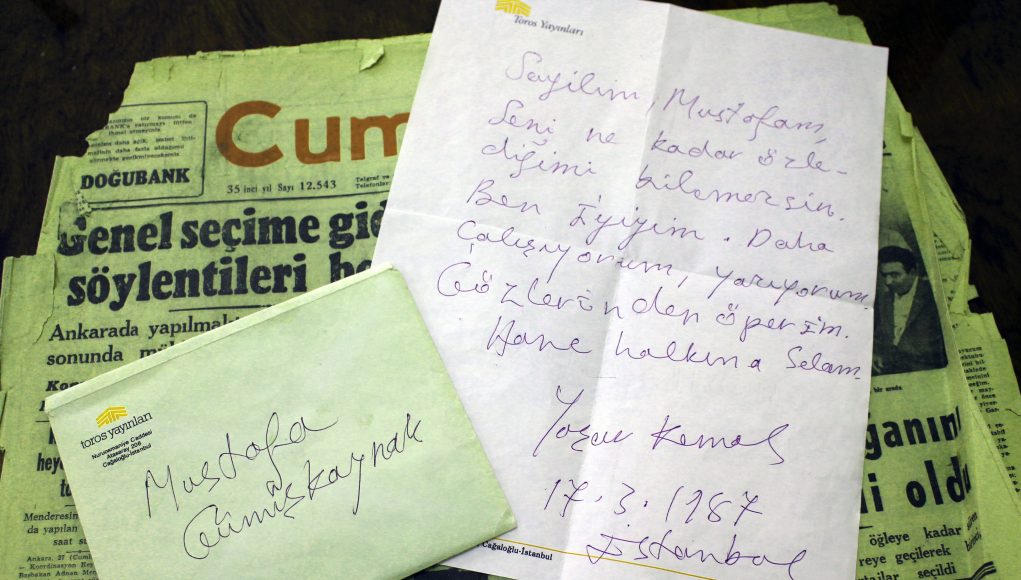 DOĞUBANK
Cum
35 inci yıl Sayı 12.543
Telgraf ve
Telefonlar
Genel seçime gid
söylentileri be
Ankarada yapılmak
sonunda mü
Menderesin
da yapılan
saat su
Ankara, 27 (Cumh
— Koordinasyon
Başbakan Adnan Men
toros yayınları
Nuruosmaniye Caddesi
Atasaray 206
Cağaloğlu-İstanbul
Mustafa
Gümüşkaynak
Toros Yayınları
Sayilim, Mustafam,
Seni ne kadar özle-
diğimi bilemezsin.
Ben İyiyim. Daha
Çalışıyorum, yazıyorum
Gözlerinden öperim.
Hane halkına Selam.
Yaşar Kemal
17.3.1987
İstanbul
Cağaloğlu-İstanbul
bir arada
ğanın
di oldu
öğleye kadar
reye geçilerek
tajlar seçildi